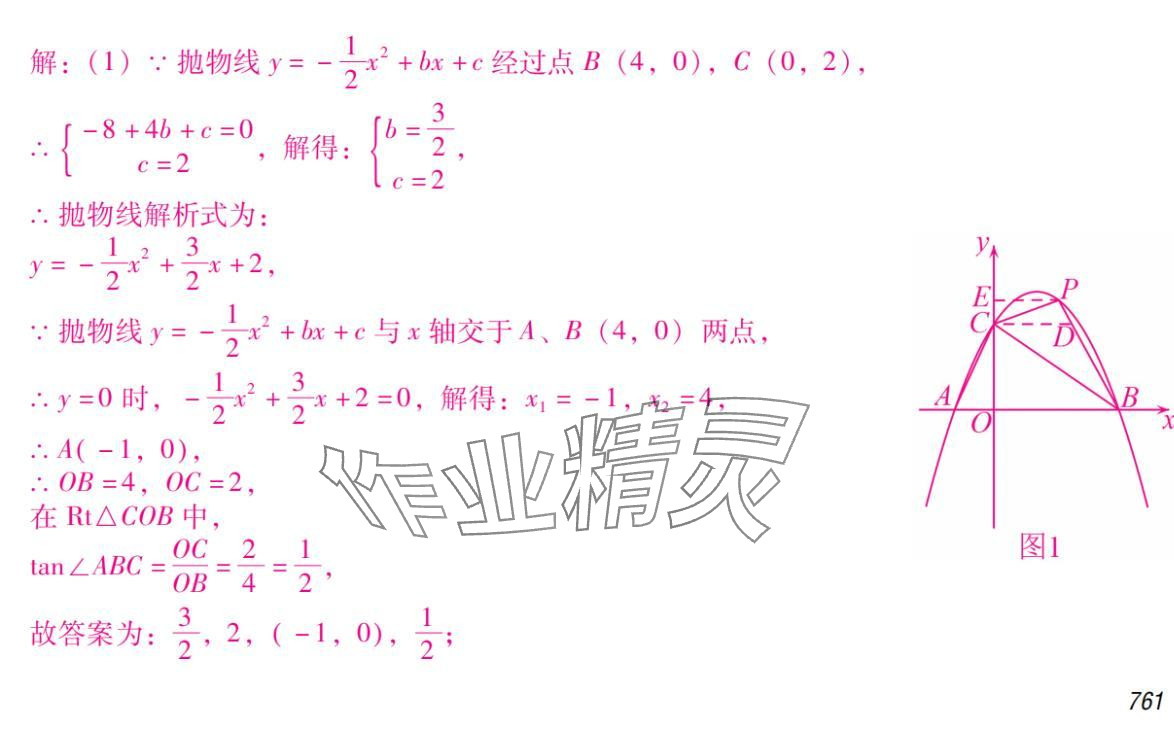 解：(1) ∵ 抛物线 y = -\frac{1}{2}x² + bx + c 经过点 B (4, 0), C (0, 2),
∴ { -8 + 4b + c = 0, c = 2 , 解得： { b = \frac{3}{2}, c = 2 ,
∴ 抛物线解析式为：
y = -\frac{1}{2}x² + \frac{3}{2}x + 2,
∵ 抛物线 y = -\frac{1}{2}x² + bx + c 与 x 轴交于 A、B (4, 0) 两点,
∴ y = 0 时, -\frac{1}{2}x² + \frac{3}{2}x + 2 = 0, 解得：x₁ = -1, x₂ = 4,
∴ A( -1, 0),
∴ OB = 4, OC = 2,
在 Rt△COB 中,
tan∠ABC = \frac{OC}{OB} = \frac{2}{4} = \frac{1}{2},
故答案为：\frac{3}{2}, 2, ( -1, 0), \frac{1}{2};
y
E
P
C
D
A
B
O
x
图1
作业精灵
761